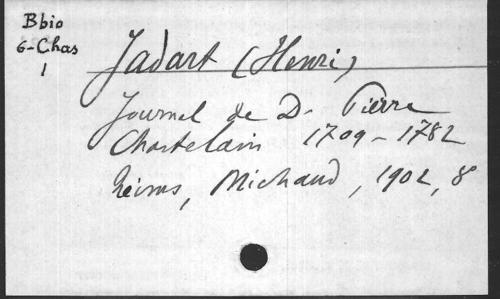 Bbio
6-Chas
1
Jadart (Henri)
Journal de D. Pierre
Chastelain 1709-1782
Reims, Michaud, 1902, 8°